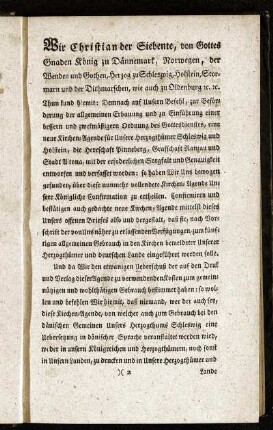 Wir Christian der Siebente, von Gottes
Gnaden König zu Dännemark, Norwegen, der
Wenden und Gothen, Herzog zu Schleswig, Holstein, Stor-
marn und der Dithmarschen, wie auch zu Oldenburg ꝛc. ꝛc.
Thun kund hiemit: Demnach auf Unsern Befehl, zur Beför-
derung der allgemeinen Erbauung und zu Einführung einer
bessern und zweckmäßigern Ordnung des Gottesdienstes, eine
neue Kirchen-Agende für Unsere Herzogthümer Schleswig und
Holstein, die Herrschaft Pinneberg, Grafschaft Ranzau und
Stadt Altona, mit der erforderlichen Sorgfalt und Genauigkeit
entworfen und verfasset worden: so haben Wir Uns bewogen
gefunden, über diese nunmehr vollendete Kirchen-Agende Un-
sere Königliche Confirmation zu ertheilen. Confirmiren und
bestätigen auch gedachte neue Kirchen-Agende mittelst dieses
Unsers offenen Briefes also und dergestalt, daß sie, nach Vor-
schrift der von Uns näher zu erlassenden Verfügungen, zum künf-
tigen allgemeinen Gebrauch in den Kirchen bemeldeter Unserer
Herzogthümer und deutschen Lande eingeführet werden solle.
Und da Wir den etwanigen Ueberschuß der auf den Druck
und Verlag dieser Agende zu verwendenden Kosten zum gemein-
nützigen und wohlthätigen Gebrauch bestimmet haben: so wol-
len und befehlen Wir hiemit, daß niemand, wer der auch sey,
diese Kirchen-Agende, von welcher auch zum Gebrauch bei den
dänischen Gemeinen Unsers Herzogthums Schleswig eine
Uebersetzung in dänischer Sprache veranstaltet werden wird,
weder in unsern Königreichen und Herzogthümern, noch sonst
in Unsern Landen, zu drucken und in Unsere Herzogthümer und
)( 2 Lande